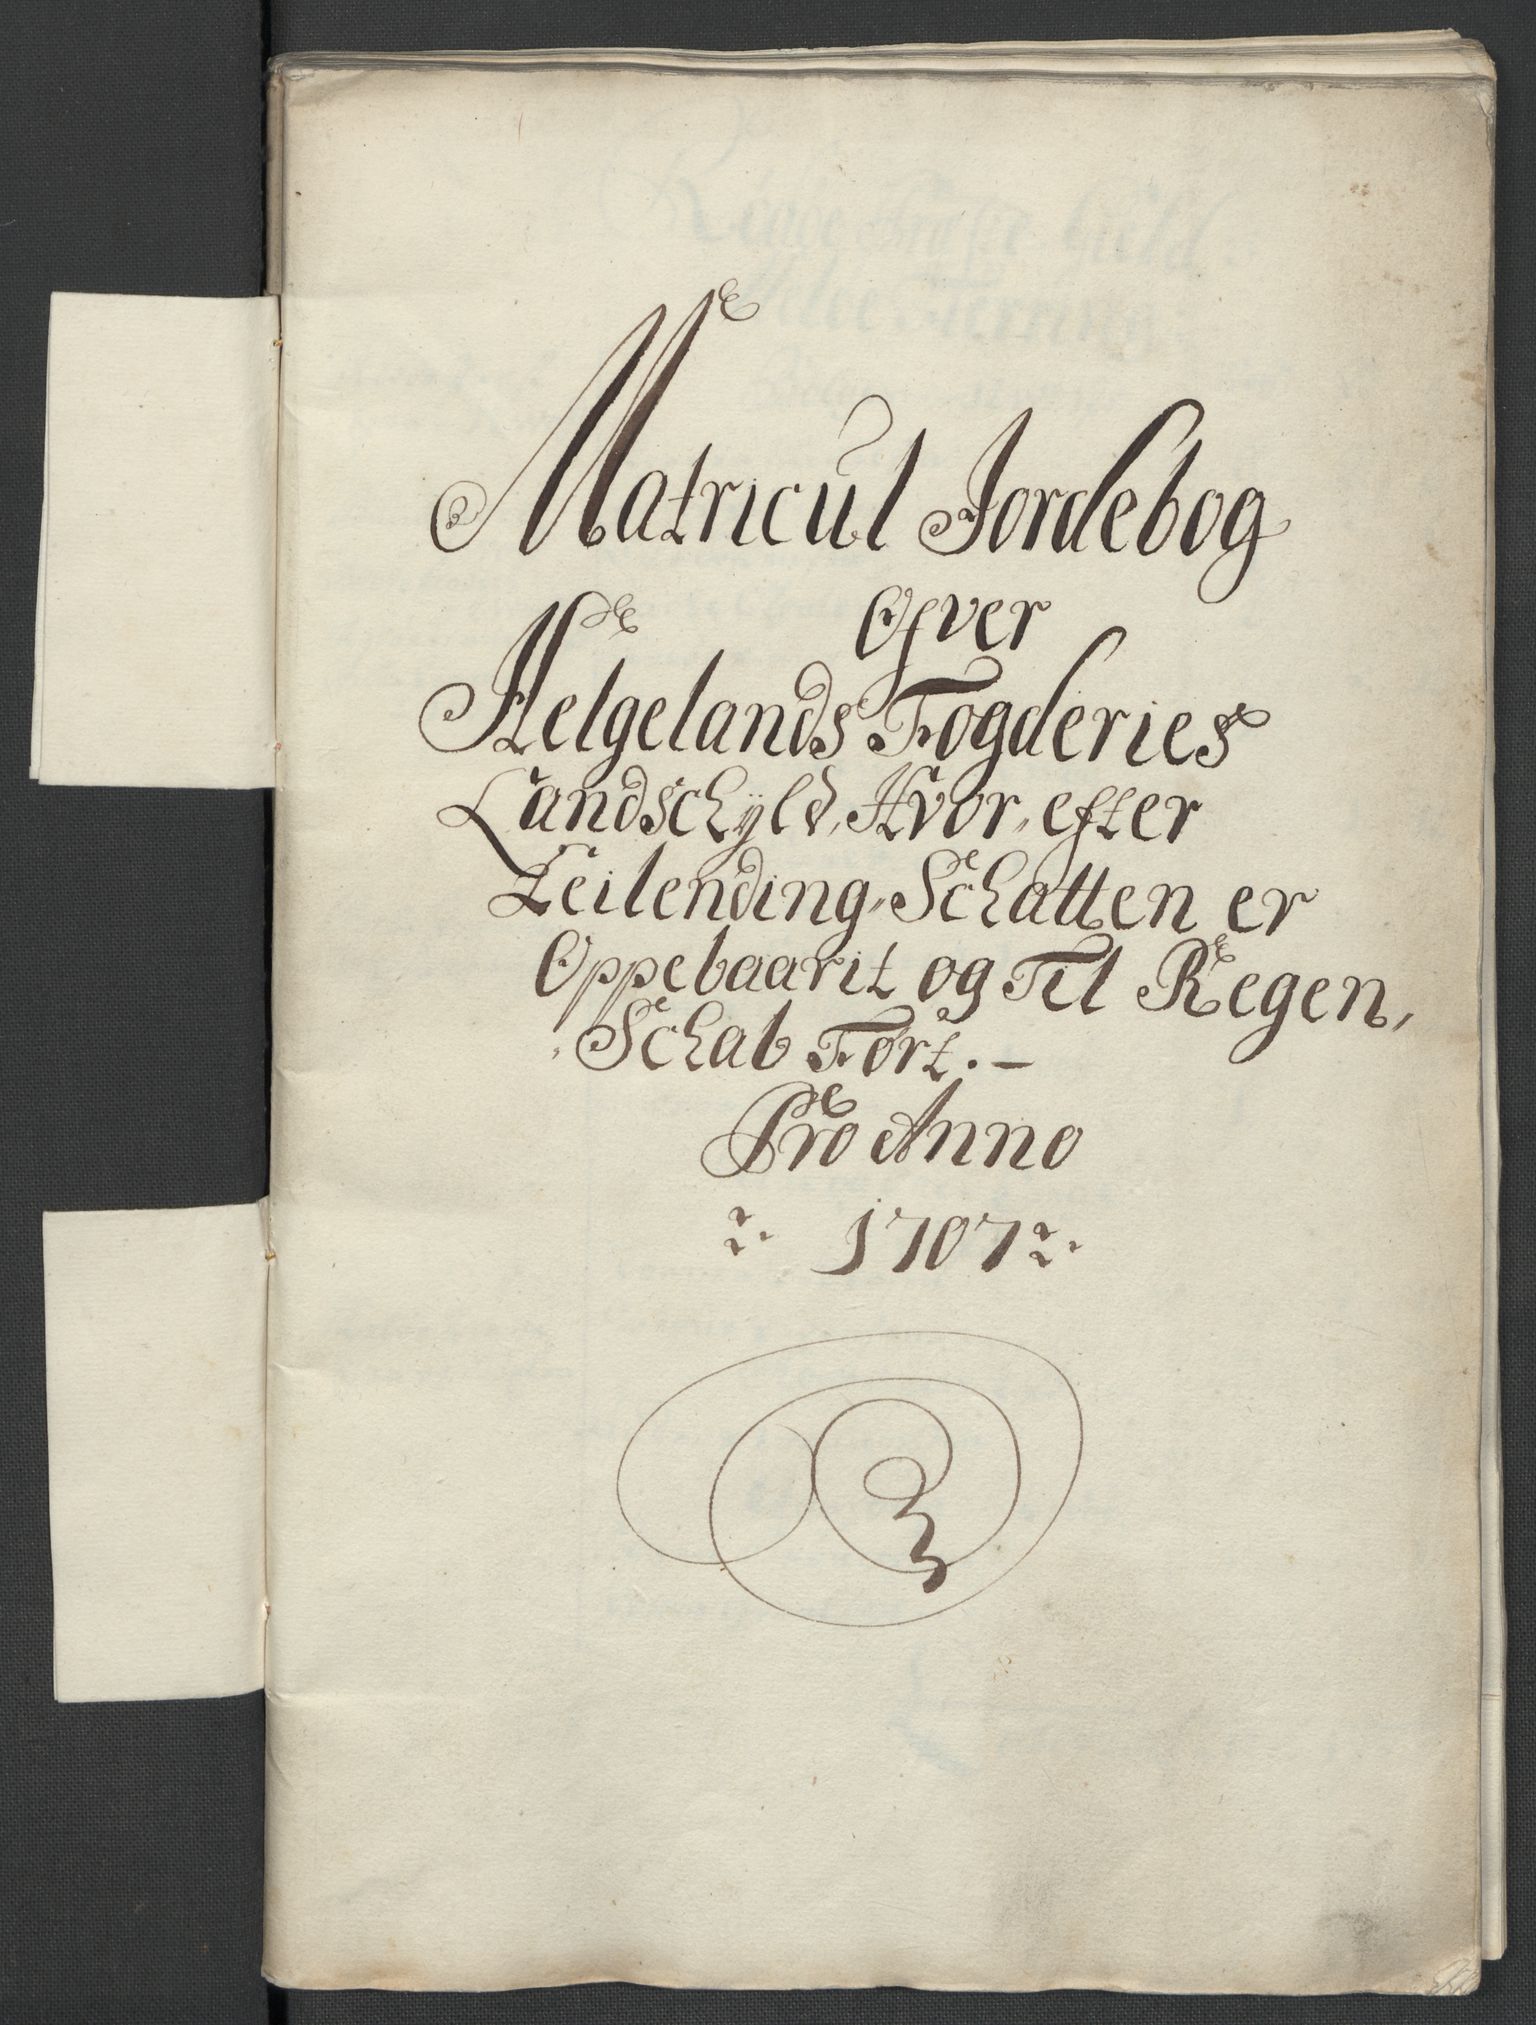 Matricul Jordebog
Ofver
Helgelands Fogderies
Landschyld, Hvor, efter
Leilending, Schatten er
Oppebaarit og Til Regen,
Schab Ført. —
Pro Anno
1707